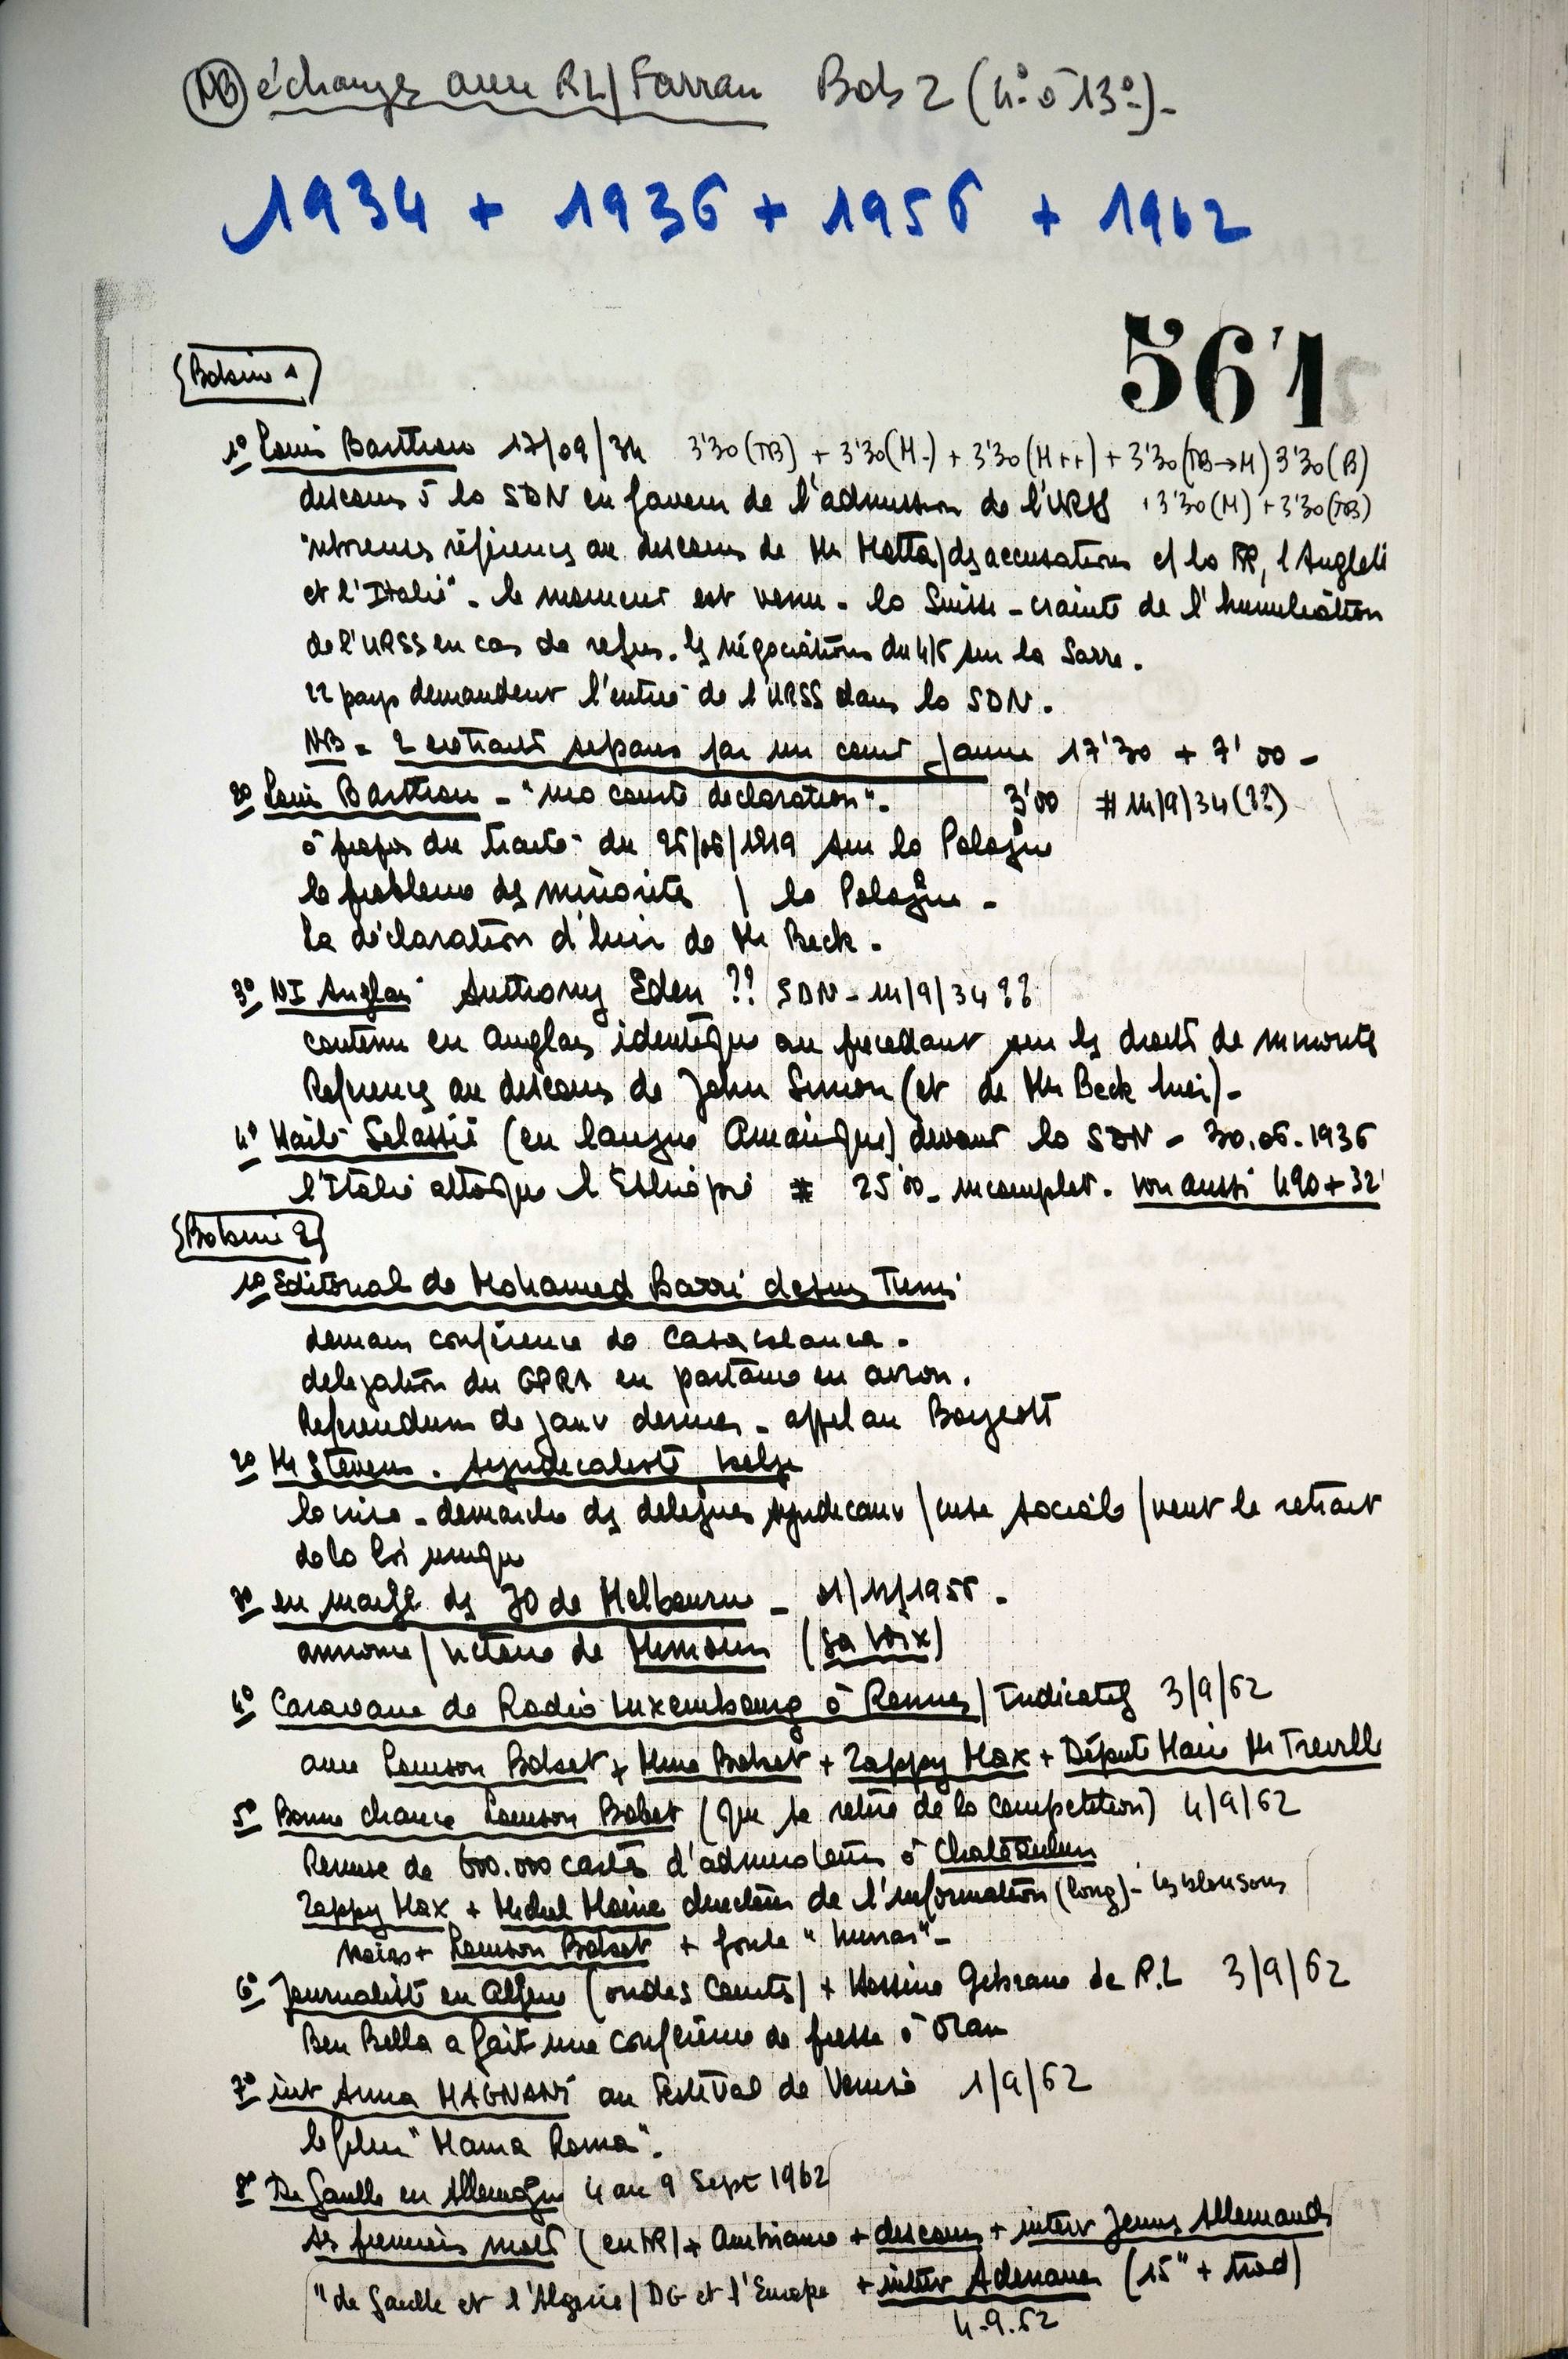 NB échanges avec RL/Farran Bob 2 (4° à 13°)-
1934 + 1936 + 1956 + 1962
561
Bobine 1
1° Louis Barthou 17/09/34 3'30 (TB) + 3'30 (M-) + 3'30 (M++) + 3'30 (TB→M) 3'30 (B)
discours à la SDN en faveur de l'admission de l'URSS + 3'30 (M) + 3'30 (TB)
références au discours de Mr Motta/ds accusations c/ la FR, l'Anglet
et l'Italie". le moment est venu - la Suisse - crainte de l'humiliation
de l'URSS en cas de refus. ls négociations du 4/6 sur la Sarre.
22 pays demandent l'entrée de l'URSS dans la SDN.
NB = 2 extraits séparés par un court Jaune 17'30 + 7'00 -
2° Louis Barthou - "ma courte déclaration". 3'00 # 14/9/34 (??)
à propos du traité du 28/06/1919 sur la Pologne
le problème ds minorités / la Pologne -
la déclaration d'hier de Mr Beck.
3° NI Anglais Anthony Eden ?? SDN - 14/9/34 ??
contenu en anglais identique au précédant sur ls droits de minorités
References au discours de John Simon (et de Mr Beck hier) -
4° Hailé Sélassié (en langue Amarique) devant la SDN - 30.06.1936
l'Italie attaque l'Ethiopie # 25'00 - incomplet. voir aussi 490 + 32'
Bobine 2
1° Editorial de Mohamed Barri depuis Tunis
demain conférence de Casablanca -
délégation du GPRA en partance en avion.
Referendum de janv dernier - appel au Boycott
2° Mr Stevens. syndicaliste belge
la crise - demande ds délégués syndicaux / crise sociale / veut le retrait
de la loi unique
3° en marge ds JO de Melbourne - 01/12/1956 -
annonce / victoire de Mimoun (sa voix)
4° Caravane de Radio Luxembourg à Rennes / Indicatif 3/9/62
avec Louison Bobet + Mme Bobet + Zappy Max + Député Maire Mr Treville
5° Bonne chance Louison Bobet (que se retire de la compétition) 4/9/62
Remise de 600.000 cartes d'admirateurs à Chateaulin
Zappy Max + Michel Moine directeur de l'information (long) - les blousons
noirs + Louison Bobet + foule "hurras" -
6° Journaliste en Algérie (ondes courtes) + Hossine Gebrane de R.L 3/9/62
Ben Bella a fait une conférence de presse à Oran
7° int Anna MAGNANI au Festival de Venise 1/9/62
le film "Mama Roma".
8° De Gaulle en Allemagne 4 au 9 Sept 1962
Ss premiers mots (en FR) + Ambiance + discours + interv Jeunes Allemands
"de Gaulle et l'Algérie / DG et l'Europe + interv Adenauer (15" + trad)
4.9.62